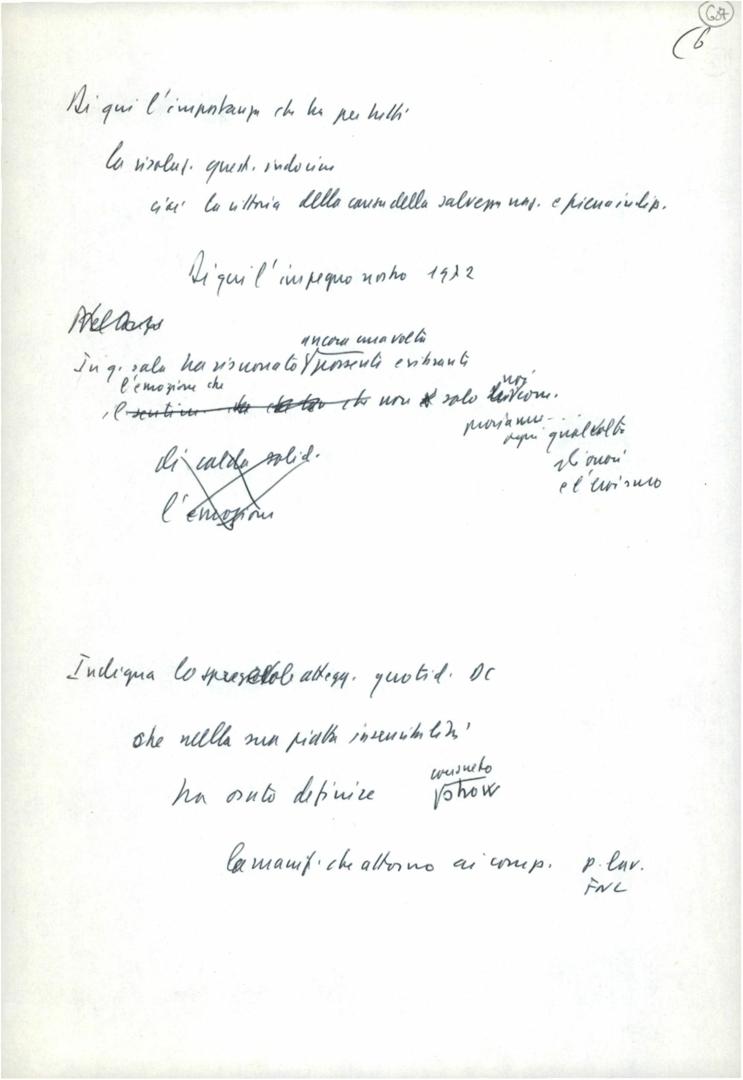 687
(6
Di qui l'importanza che ha per tutti
la risoluz. quest. indocin
cioè la vittoria della causa della salvezza naz. e piena indip.
Di qui l'impegno nostro 1972
Nel
ancora una volta
In q. sala ha risuonato possenti e vibranti
l'emozione che noi
il sentim. che non solo com.
proviamo...
ogni qualvolta
di calda solid. gli onori
e l'eroismo
l'emozione
Indigna lo spregevole attegg. quotid. DC
che nella sua piatta insensibilità
consueto
ha osato definire show
la manif. che attorno ai comp. p. lav.
FNL